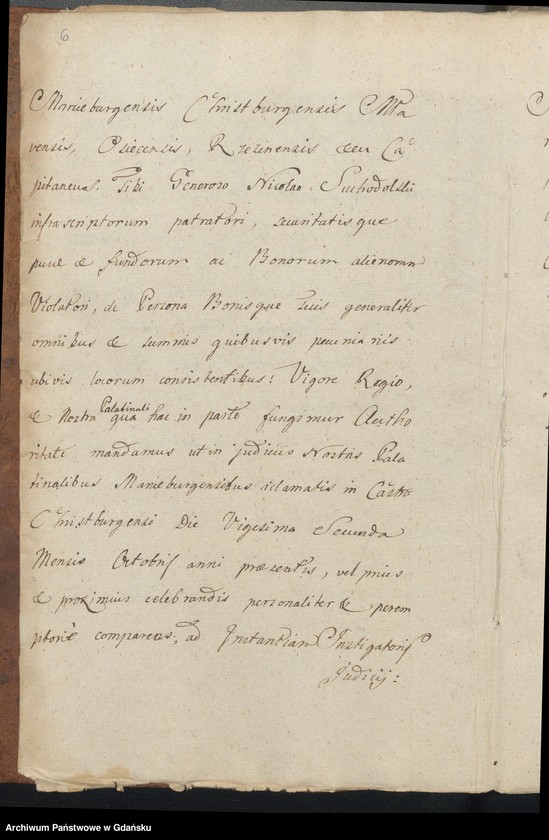 6
Marieburgensis Christburgensis Mᵉʷᵃ
vensis, Osiecensis, Rzezinensis seu Caᶜ
pitaneus. Tibi Generoso Nicolao Suchodolski
infrascriptorum patratori, securitatisque
puue & fundorum ac Bonorum alienorum
Violatori, de Persona Bonisque Tuis generaliter
omnibus & summis quibusvis pecuniariis
ubivis locorum consistentibus: Vigore Regio,
& Nostra Palatinali qua hac in parte fungimur Autho
ritate mandamus ut in judiciis Nostris Pala
tinalibus Marieburgensibus aclamatis in Castro
Christburgensi Die Vigesima Secunda
Mensis Octobris anni praesentis, vel prius
& proximius celebrandis personaliter & perem
ptorie compareas, ad Instantiam Instigatoris
Judicij:
Archiwum Państwowe w Gdańsku